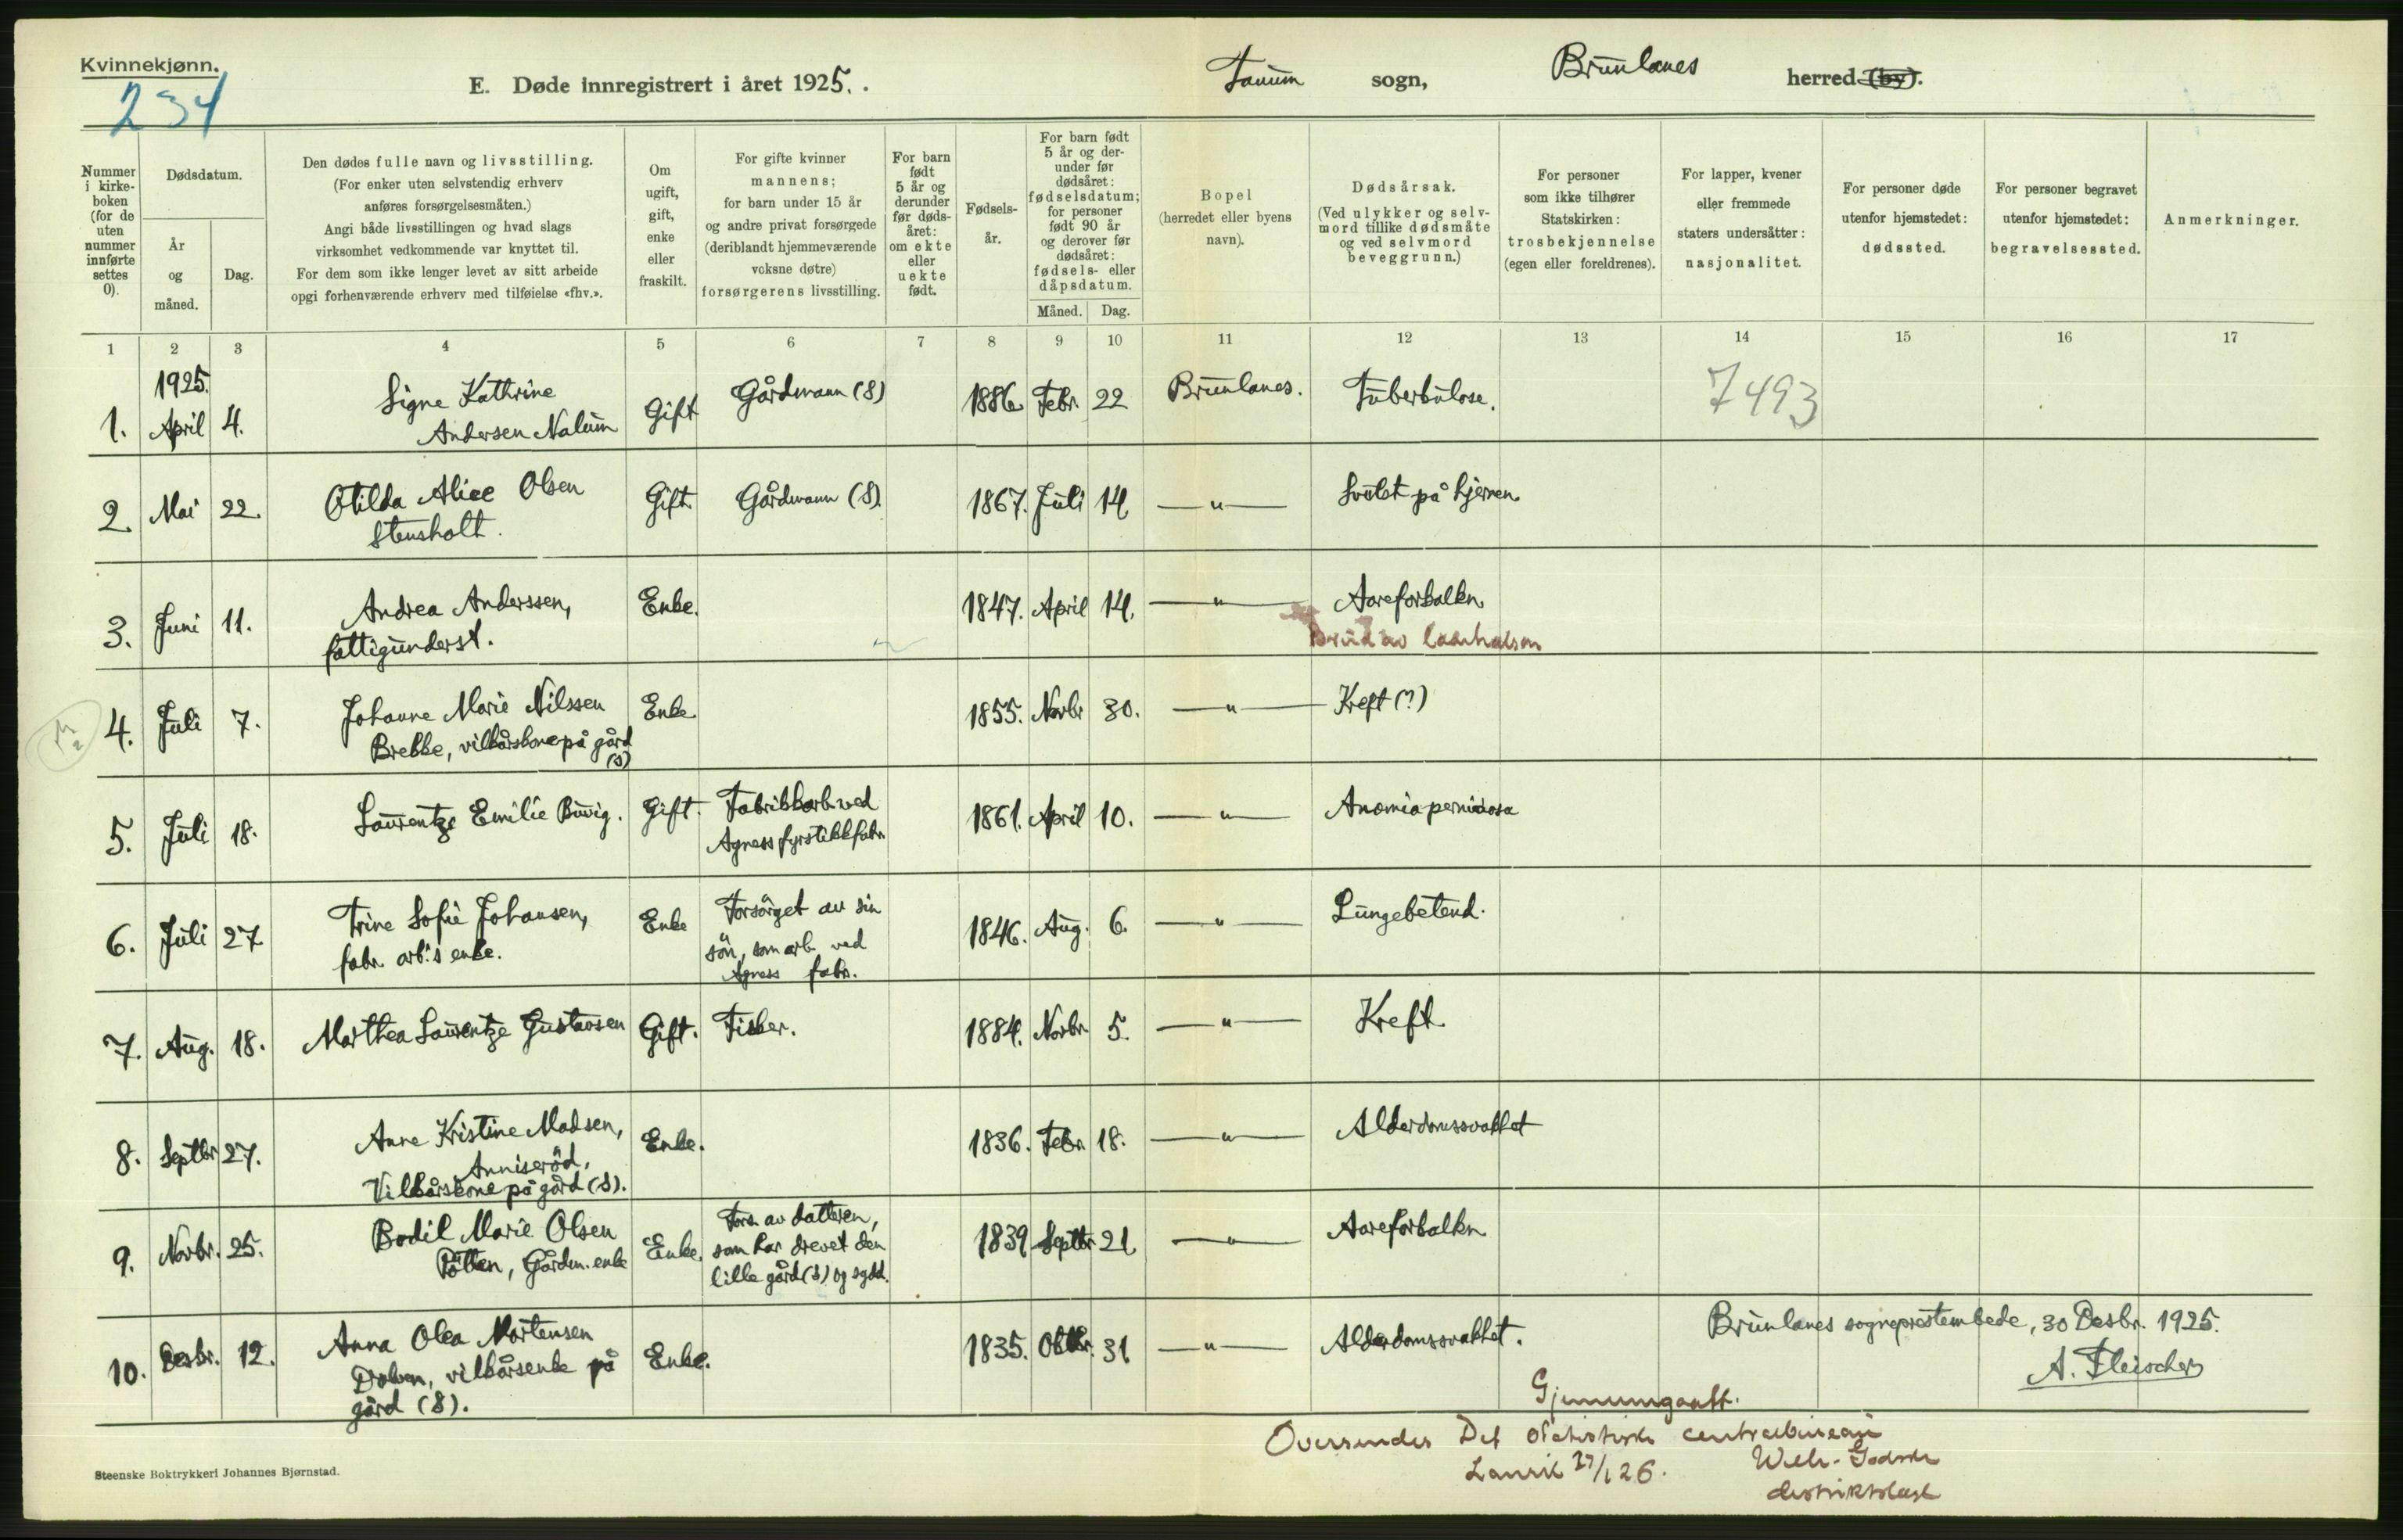 Kvinnekjønn.
234
E. Døde innregistrert i året 1925. .
Tanum sogn, Brunlanes herred (by).
Nummer i kirkeboken (for de uten nummer innførte settes 0).
Dødsdatum.
År og måned.
Dag.
Den dødes fulle navn og livsstilling.
(For enker uten selvstendig erhverv
anføres forsørgelsesmåten.)
Angi både livsstillingen og hvad slags
virksomhet vedkommende var knyttet til.
For dem som ikke lenger levet av sitt arbeide
opgi forhenværende erhverv med tilføielse «fhv.».
Om ugift, gift, enke eller fraskilt.
For gifte kvinner
mannens;
for barn under 15 år
og andre privat forsørgede
(deriblandt hjemmeværende
voksne døtre)
forsørgerens livsstilling.
For barn født 5 år og derunder før dødsåret: om ekte eller uekte født.
Fødselsår.
For barn født 5 år og derunder før dødsåret: fødselsdatum; for personer født 90 år og derover før dødsåret: fødsels- eller dåpsdatum.
Måned. Dag.
Bopel
(herredet eller byens
navn).
Dødsårsak.
(Ved ulykker og selvmord tillike dødsmåte og ved selvmord beveggrunn.)
For personer
som ikke tilhører
Statskirken:
trosbekjennelse
(egen eller foreldrenes).
For lapper, kvener
eller fremmede
staters undersåtter:
nasjonalitet.
For personer døde
utenfor hjemstedet:
dødssted.
For personer begravet
utenfor hjemstedet:
begravelsessted.
Anmerkninger.
1 2 3 4 5 6 7 8 9 10 11 12 13 14 15 16 17
1925.
1. April 4. Signe Kathrine Andersen Nalum Gift Gårdmann (S) 1886 Febr 22 Brunlanes. Tuberkulose. 7493
2. Mai 22. Otilda Alice Olsen Stensholt. Gift Gårdmann (S) 1867. Juli 14 —"— Svulst på hjernen
3. Juni 11. Andrea Anderssen, fattigunderst. Enke. 1847. April 14. —"— Aareforkalkn.
Brud av laarhalsen
4. Juli 7. Johanne Marie Nilssen Brekke, vilkårskone på gård (S) Enke 1855. Novbr 30. —"— Kreft (?)
5. Juli 18. Laurentze Emilie Buvig. Gift. Fabrikkarb. ved Agness fyrstikkfabr. 1861. April 10. —"— Anæmia perniciosa
6. Juli 27 Trine Sofie Johansen, fabr. arb:s enke. Enke Forsørget av sin søn, som arb. ved Agness fabr. 1846. Aug. 6. —"— Lungebetend.
7. Aug. 18. Marthea Laurentze Gustavsen Gift. Fisker. 1884. Novbr. 5. —"— Kreft
8. Septbr 27. Anne Kristine Madsen, Anniserød, Vilkårskone på gård (S). Enke. 1836. Febr. 18. —"— Alderdomssvakhet
9. Novbr. 25. Bodil Marie Olsen Pøtten, Gårdm. enke Enke. Fors. av datteren, som har drevet den lille gård (S) og sydd. 1839 Septbr 21 —"— Aareforkalkn.
10. Desbr. 12. Anna Olea Mortensen Dolven, vilkårsenke på gård (S). Enke. 1835. Oktbr. 31 —"— Alderdomssvakhet.
Brunlanes sogneprestembede, 30 Desbr. 1925.
A. Fleischer
Gjennemgaatt.
Oversendes Det statistiske centralbureau
Larvik 27/1 26.
distriktslæge
Steenske Boktrykkeri Johannes Bjørnstad.